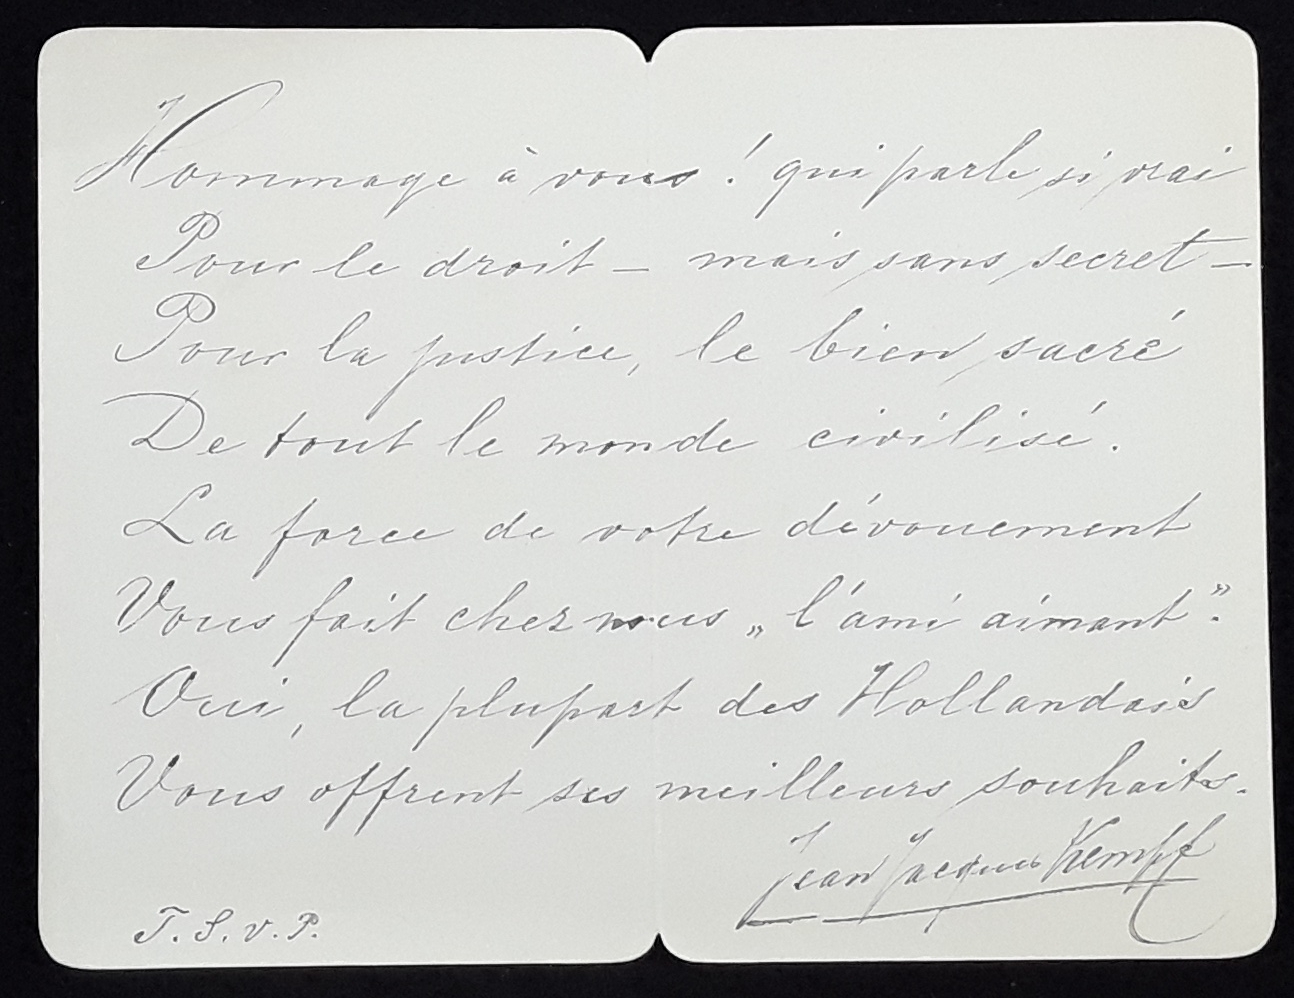 Hommage à vous ! qui parle si vrai
Pour le droit — mais sans secret —
Pour la justice, le bien sacré
De tout le monde civilisé.
La force de votre dévouement
Vous fait chez nous „ l'ami aimant".
Oui, la plupart des Hollandais
Vous offrent ses meilleurs souhaits.
Jean Jacques Kempff
T. S. v. P.